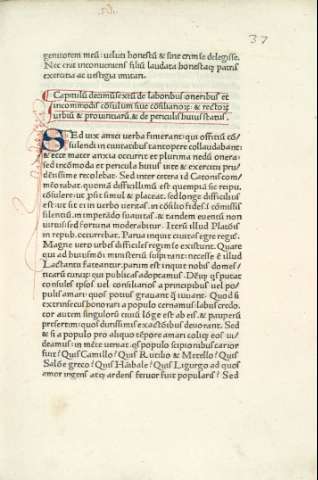 37
genitorem meū: ueluti honestū & sine crimīe delegisse.
Nec erit inconueniens filiū laudata honestacq patris
exercitia ac uestigia imitari.
Capitulū decimūsextū de laboribus oneribus et
incommodis cōsulum siue cōsilianoɤ: & rectoɤ
urbiū & prouinciarū & de periculis huius status.
Ed uix amici uerba finierant: qui offitiū cō/
sulendi in ciuitatibus tantopere collaudabant:
& ecce mater anxia occurrit et plurima nedū onera:
sed incōmoda et pericula huius uite & exercitii pru/
dētissime recolebat. Sed inter cetera id Catonis com/
mēorabat. quomā difficillimū est quempiā sic reipu.
cōsulere: ut ipsi simul & placeat. sed longe difficilius
est: ut sit ei in uerbo ueritas. in cōsilio fides. I cōmissis
silentiū. in imperādo suauitas. & tandem euenti non
uirtus: sed fortuna moderabitur. Iterū illud Platōis
in repub. occurrebat. Parua inquit ciuitas egre regif.
Magne uero urbes difficile regimē existunt. Quare
qui ad huiusmōi munisteriū
Lactantio fateantur. parum est inquit nobis domes/
ticarū curaɤ: qui publicas adoptamus. Deniq qs putat
consules ipsos uel consiliarios a principibus uel po/
pulis amari: quos potius grauant q̄ iuuant. Quod si
extrinsecus honorari a populo cernamus labus credo.
tor autem singuloɤ ciuiū lōge est ab eis. & pauperū
presertim: quos durissimis exactōibus deuorant. Sed
& si a populo pro aliquo tēpore amari coliq eos ui/
deamus: in mēte ueniat. qs populo scipionibus carior
fuit? Quis Camillo? Quis Rutilio & Metello? Quis
Salōe greco? Quis Hānibale? Quis Ligurgo ad quos
amor ingens atq ardens feruor fuit popularis? Sed